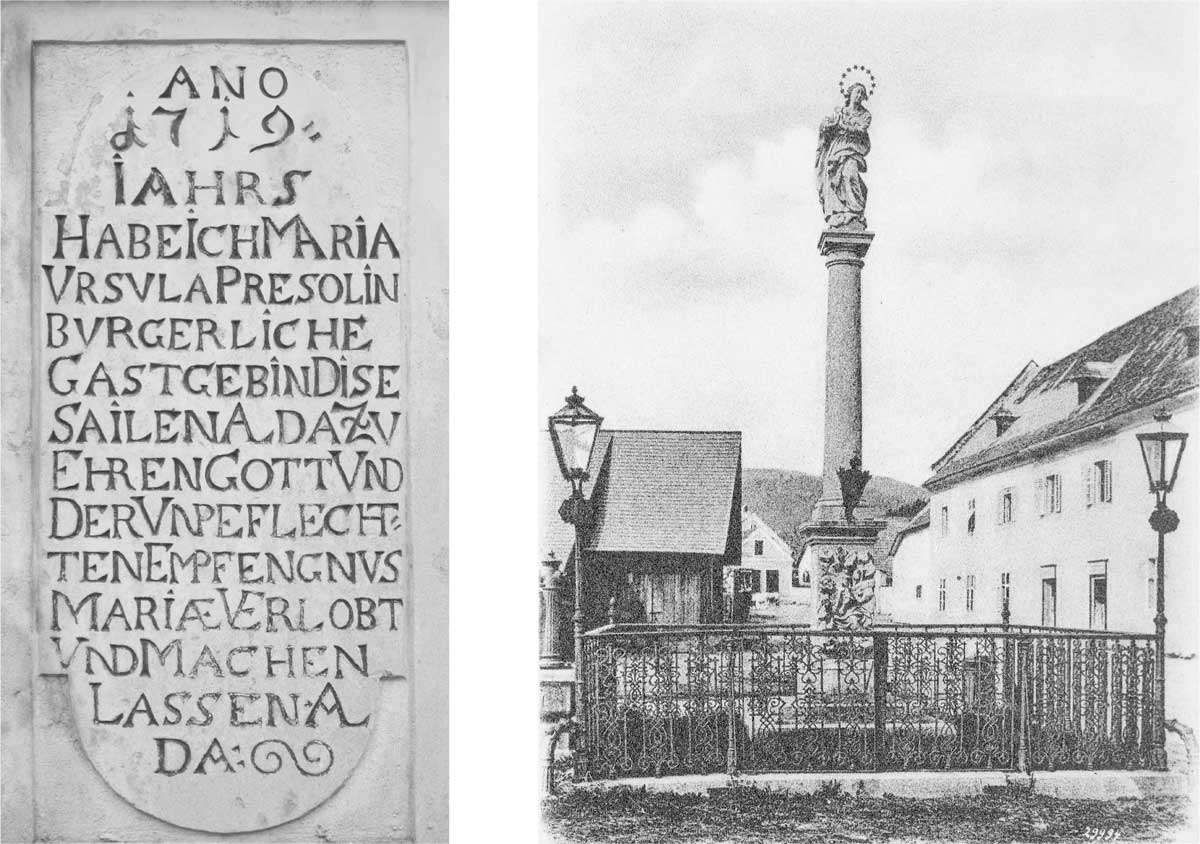 ANO
1719
IAHRS
HABEICHMARIA
VRSVLAPRESOLIN
BVRGERLICHE
GASTGEBINDISE
SAILENALDAZV
EHRENGOTTVND
DERVNPEFLECHT=
TENEMPFENGNVS
MARIÆVERLOBT
VNDMACHEN
LASSEN:AL
DA:
29994